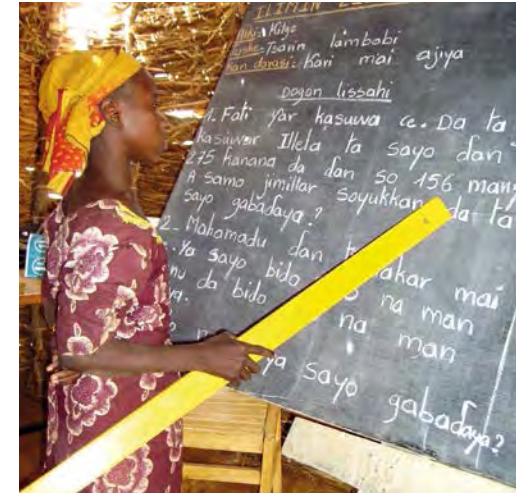 ILIMIN
Kilge
Tsarin lambobi
darasi: Kari mai ajiya
Dogon lissahi
1. Fati yar kasuwa ce. Da ta
kasuwar Illela ta sayo dan
275 hanana da dan so 156 man
A samo jimillar soyukhan da ta
sayo gabadaya?
2- Mahamadu dan mai
Ya sayo bido na man
da bido na man
ya sayo gabadaya?